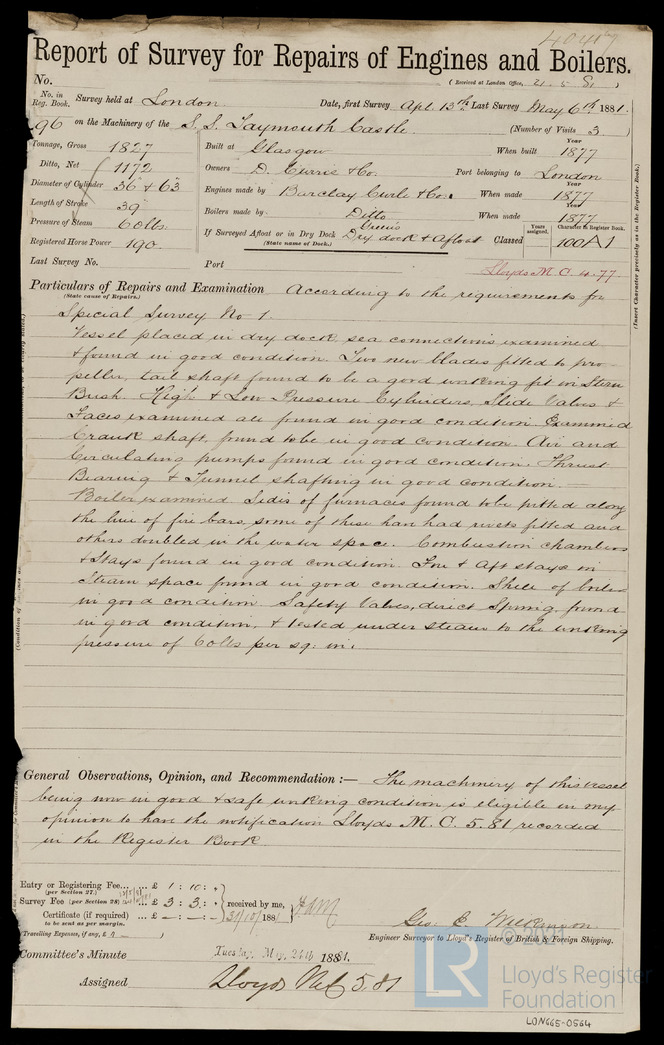 4041
Report of Survey for Repairs of Engines and Boilers.
No.
( Received at London Office, 21. 5. 81 )
No. in Reg. Book. Survey held at London Date, first Survey Apl. 13th Last Survey May 6th 1881.
96 on the Machinery of the S. S. Taymouth Castle. (Number of Visits 3. )
Tonnage, Gross 1827
Ditto, Net 1172
Diameter of Cylinder 36 & 63
Length of Stroke 39
Pressure of Steam 60lbs
Registered Horse Power 190.
Built at Glasgow When built Year 1877
Owners D. Currie & Co. Port belonging to London
Engines made by Barclay Curle & Co. When made Year 1877
Boilers made by Ditto When made Year 1877
If Surveyed Afloat or in Dry Dock Green's Dry dock & Afloat
(State name of Dock.)
Classed Years assigned. Character in Register Book. 100A1
Last Survey No. Port Lloyds M. C. 4.77.
(Insert Character precisely as in the Register Book.)
Particulars of Repairs and Examination According to the requirements for
(State cause of Repairs.)
Special Survey No 1.
Vessel placed in dry dock, sea connections examined
& found in good condition. Two new blades fitted to pro-
peller, tail shaft found to be a good working fit in Stern
Bush. High & Low Pressure Cylinders, Slide Valves &
Faces examined all found in good condition. Examined
Crank shaft, found to be in good condition. Air and
Circulating pumps found in good condition. Thrust
Bearing & Tunnel shafting in good condition.—
Boiler examined. Sides of furnaces found to be pitted along
the line of fire bars, some of these have had rivets fitted and
others doubled in the water space. Combustion chambers
& Stays found in good condition. Fore & Aft stays in
Steam space found in good condition. Shell of boiler
in good condition. Safety Valves, direct Spring, found
in good condition, & tested under steam to the working
pressure of 60lbs per sq: in:
General Observations, Opinion, and Recommendation :— The machinery of this vessel
being now in good & safe working condition is eligible in my
opinion to have the notification Lloyds M. C. 5. 81 recorded
in the Register Book.
Entry or Registering Fee... £ 1 : 10 : -
(per Section 27.)
Survey Fee (per Section 28) £ 3 : 3 : -
Certificate (if required) ... £ – : – : –
to be sent as per margin.
(Travelling Expenses, if any, £ )
received by me,
1881
Geo. E.
Engineer Surveyor to Lloyd's Register of British & Foreign Shipping.
Committee's Minute Tuesday, May 24th 1881.
Assigned Lloyds MC 5.81
© 2021
LR
Lloyd's Register
Foundation
LON665-0564